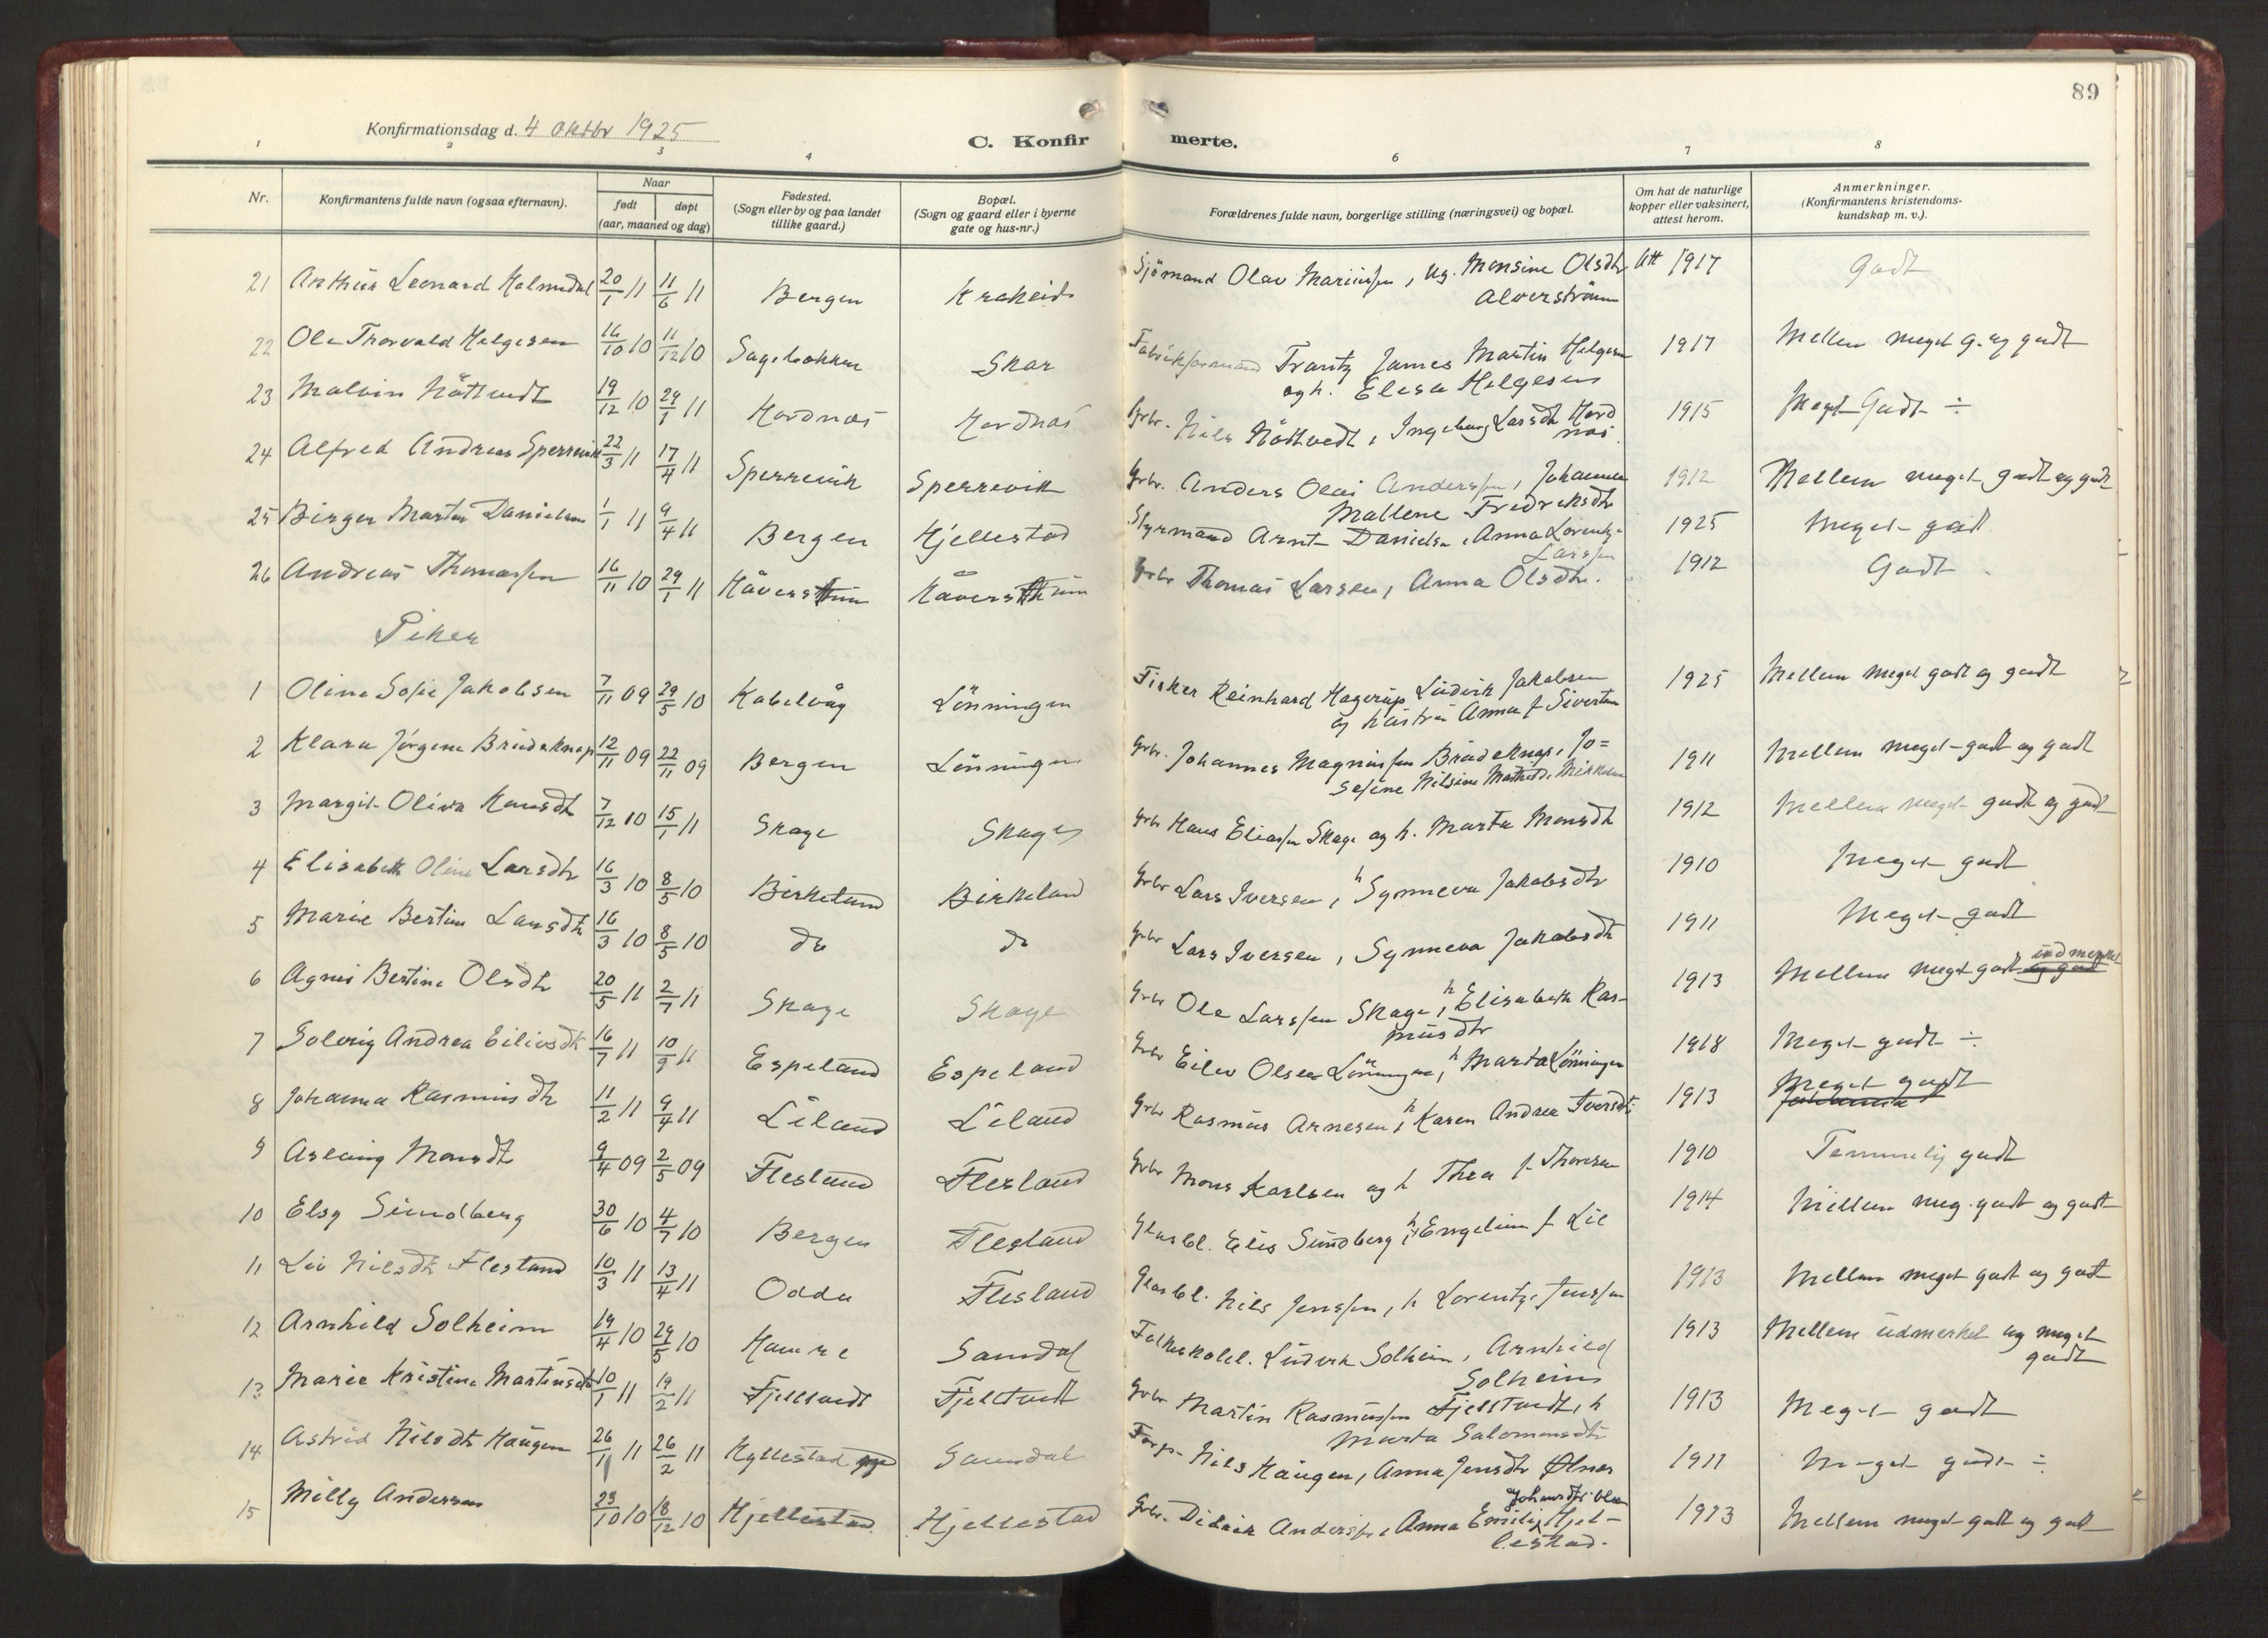 89
Konfirmationsdag d. 4 oktbr 1925
C. Konfirmerte.
1 2 3 4 6 7 8
Nr. Konfirmantens fulde navn (ogsaa efternavn). Naar født døpt (aar, maaned og dag) Fødested. (Sogn eller by og paa landet tillike gaard.) Bopæl. (Sogn og gaard eller i byerne gate og hus-nr.) Forældrenes fulde navn, borgerlige stilling (næringsvei) og bopæl. Om hat de naturlige kopper eller vaksinert, attest herom. Anmerkninger. (Konfirmantens kristendoms-kundskap m. v.).
21 Arthur Leonard Holmedal 20/1 11 11/6 11 Bergen Krokeide Sjömand Olav Mariussen, ug. Monsine Olsdtr Att 1917 Godt
Alverström
22 Ole Thorvald Helgesen 16/10 10 11/12 10 Skar Fabrikformand Frantz James Martin Helgesen 1917 Mellem meget g. og godt
og h. Elisa Helgesen
23 Malvin Nöttvedt 19/12 10 29/1 11 Hordnæs Hordnæs Grbr. Nils Nöttvedt, Ingeborg Larsdtr Hord 1915 Meget Godt ÷
næs.
24 Alfred Andreas Sperrevik 22/3 11 17/4 11 Sperrevik Sperrevik Grbr. Anders Olai Anderssen, Johanna 1912 Mellem meget godt og godt
Mallene Fredriksdtr
25 Birger Martin Danielsen 1/1 11 9/4 11 Bergen Hjellestad Styrmand Arnt Danielsen, Anna Lorentze 1925 Meget godt
Larssen
26 Andreas Thomassen 16/11 10 29/1 11 Håversthun Håversthun Grbr Thomas Larsen, Anna Olsdtr. 1912 Godt
Piker
1 Oline Sofie Jakobsen 7/11 09 29/5 10 Kabelvåg Lönningen Fisker Reinhard Hagerup Ludvik Jakobsen 1925 Mellem meget godt og godt
og hustru Anna f Sivertsen
2 Klara Jörgine Brudeknap 12/11 09 22/11 09 Bergen Lönningen Grbr. Johannes Magnussen Brudeknap, Jo= 1911 Mellem meget godt og godt
sefine Nilsine Mathilde Mikkelsen
3 Margit Oliva Hansdtr 7/12 10 15/1 11 Skage Skage Grbr Hans Eliassen Skage og h. Marta Monsdtr 1912 Mellem meget godt og godt
4 Elisabeth Oline Larsdtr 16/3 10 8/5 10 Birkeland Birkeland Grbr Lars Iversen, h Synneva Jakobsdtr 1910 Meget godt
5 Marie Bertine Larsdtr 16/3 10 8/5 10 do do Grbr Lars Iversen, Synneva Jakobsdtr 1911 Meget godt
6 Agnes Bertine Olsdtr 20/5 11 2/7 11 Skage Skage Grbr Ole Larssen Skage, h Elisabeth Ras- 1913 Mellem meget godt og godt udmerket
musdtr
7 Solveig Andrea Eilivsdtr 16/7 11 10/9 11 Espeland Espeland Grbr Eiliv Olsen Lönningen, h Marta Lönningen 1918 Meget godt ÷
8 Johanna Rasmusdtr 11/2 11 9/4 11 Liland Liland Grbr Rasmus Arnesen, h Karen Andrea Iversdtr 1913 Meget godt
Johanna
9 Aslaug Monsdtr 9/4 09 2/5 09 Flesland Flesland Grbr Mons Karlsen og h Thea f. Thoresen 1910 Temmelig godt
10 Elsy Sundberg 30/6 10 4/7 10 Bergen Flesland Glasbl. Elis Sundberg, h Engeline f Lie 1914 Mellem meg. godt og godt
11 Liv Nilsdtr Flesland 10/3 11 13/4 11 Odda Flesland Glasbl. Nils Jenssen, h Lorentze Jenssen 1913 Mellem meget godt og godt
12 Arnhild Solheim 19/4 10 29/5 10 Hamre Samdal Folkeskolel. Ludvik Solheim, Arnhild 1913 Mellem udmerket og meget
Solheim godt
13 Marie Kristine Martinsdtr 10/1 11 19/2 11 Fjelltvedt Fjelltvedt Grbr Martin Rasmussen Fjelltvedt, h 1913 Meget godt
Marta Salomonsdtr
14 Astrid Nilsdtr Haugen 26/1 11 26/2 11 Hyllestad Samdal Forp. Nils Haugen, Anna Jensdtr Ølnes 1911 Meget godt ÷
15 Milly Andersen 23/10 10 18/12 10 Hjellestad Hjellestad Grbr. Didrik Anderssen, Anna Emilie Hjel- 1923 Mellem meget godt og godt
lestad.